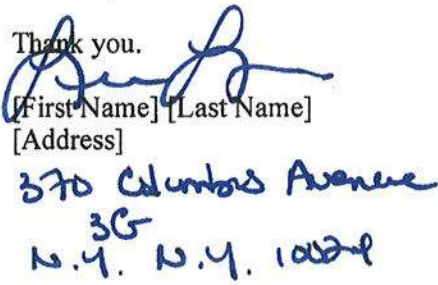 Thank you.
[First Name] [Last Name]
[Address]
370 Columbus Avenue
3G
N.Y. N.Y.